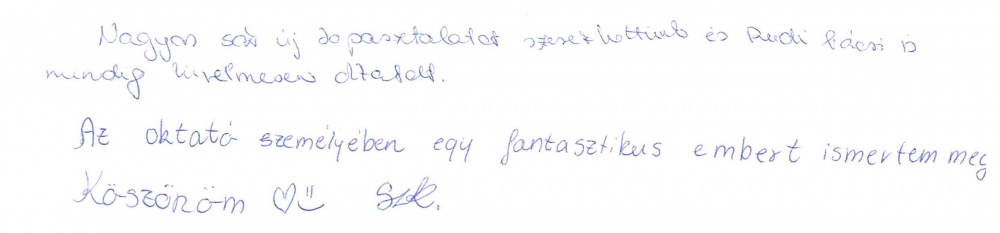 Nagyon sok új tapasztalatot szerezhettünk és Rudi bácsi is
mindig türelmesen oktatott.
Az oktató személyében egy fantasztikus embert ismertem meg
Köszönöm ♡